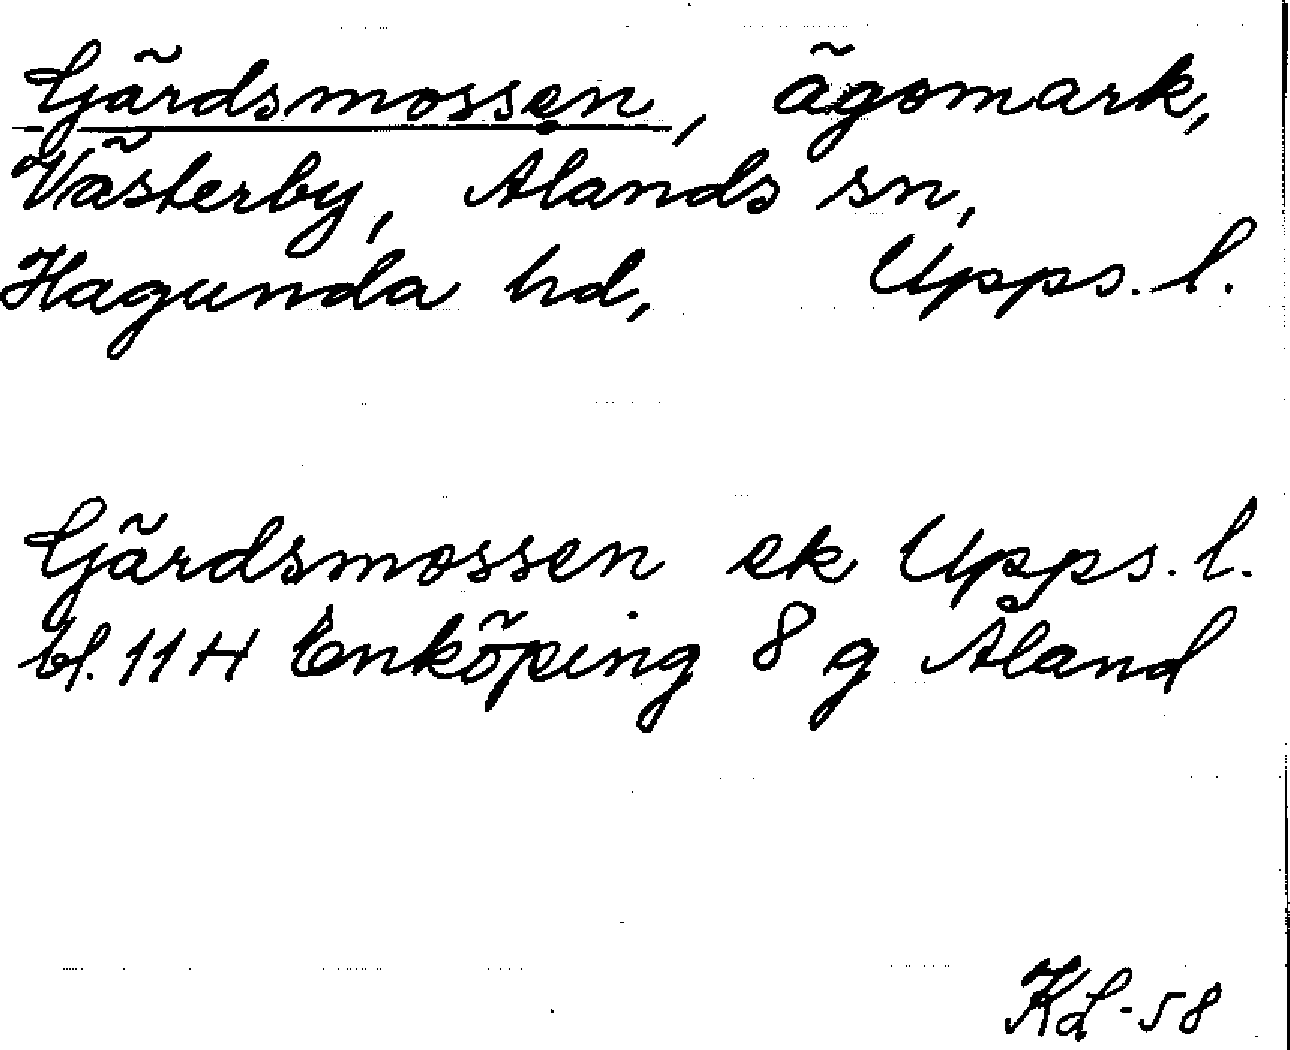 Gärdsmossen, ägomark,
Västerby, Ålands sn,
Hagunda hd, Upps. l.
Gärdsmossen ek Upps. l.
bl. 11 H Enköping 8 g Åland
KL-58